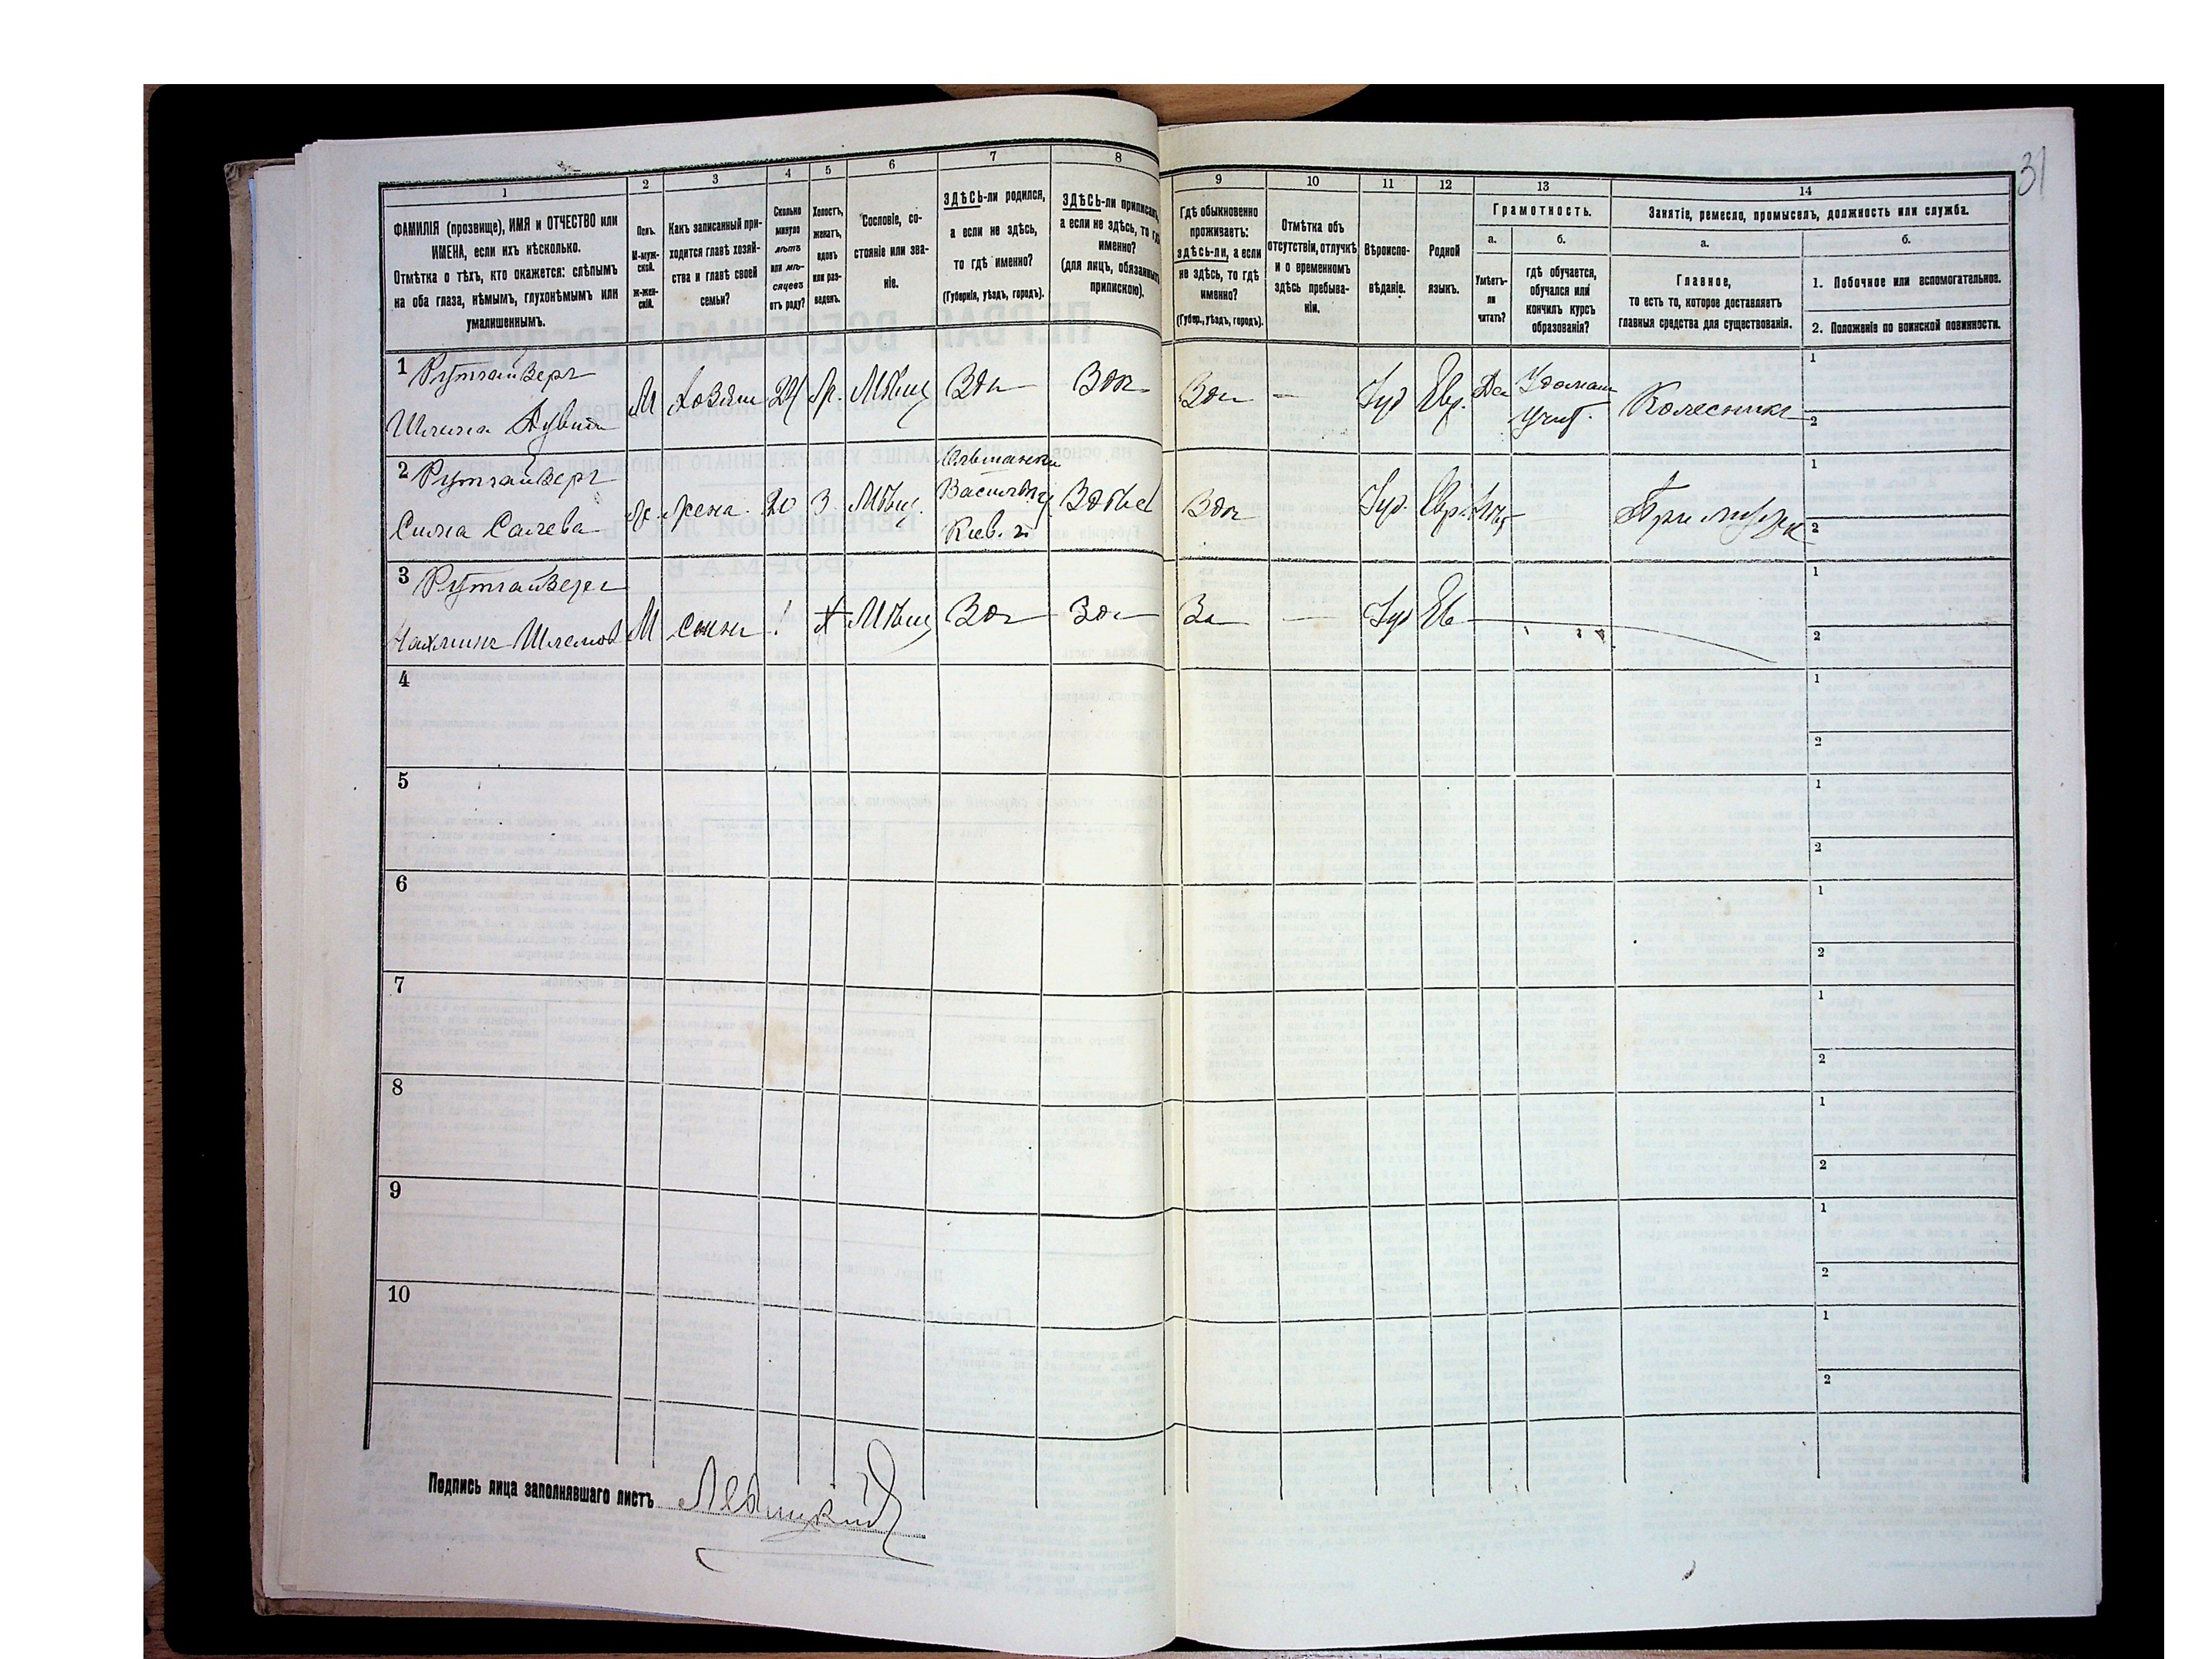 31
1 2 3 4 5 6 7 8 9 10 11 12 13 14
ФАМИЛІЯ (прозвище), ИМЯ и ОТЧЕСТВО или
ИМЕНА, если ихъ нѣсколько.
Отмѣтка о тѣхъ, кто окажется: слѣпымъ
на оба глаза, нѣмымъ, глухонѣмымъ или
умалишеннымъ.
Полъ.
М-муж-
ской.
ж-жен-
скій.
Какъ записанный при-
ходится главѣ хозяй-
ства и главѣ своей
семьи?
Сколько
минуло
лѣтъ
или мѣ-
сяцевъ
отъ роду?
Холостъ,
женатъ,
вдовъ
или раз-
веденъ.
Сословіе, со-
стояніе или зва-
ніе.
ЗДѢСЬ-ли родился,
а если не здѣсь,
то гдѣ именно?
(Губернія, уѣздъ, городъ).
ЗДѢСЬ-ли приписанъ,
а если не здѣсь, то гдѣ
именно?
(для лицъ, обязанныхъ
припискою).
Гдѣ обыкновенно
проживаетъ:
здѣсь-ли, а если
не здѣсь, то гдѣ
именно?
(Губер., уѣздъ, городъ).
Отмѣтка объ
отсутствіи, отлучкѣ
и о временномъ
здѣсь пребыва-
ніи.
Вѣроиспо-
вѣданіе.
Родной
языкъ.
Грамотность.
а. б.
Умѣетъ-
ли
читать?
гдѣ обучается,
обучался или
кончилъ курсъ
образованія?
Занятіе, ремесло, промыселъ, должность или служба.
а. б.
Главное,
то есть то, которое доставляетъ
главныя средства для существованія.
1. Побочное или вспомогательное.
2. Положеніе по воинской повинности.
1 Рутгайзеръ
М Хозяин 24 Мѣщ Іуд Евр. Да Колесникъ
1
2
2 Рутгайзеръ
жена 20 З Мѣщ. Васильк у Здѣсь Іуд. Евр.
Кіев. г.
При мужѣ
1
2
3 Рутгайзеръ
М сынъ 1 Х Мѣщ Іуд Ев
1
2
4
1
2
5
1
2
6
1
2
7
1
2
8
1
2
9
1
2
10
1
2
Подпись лица заполнявшаго листъ